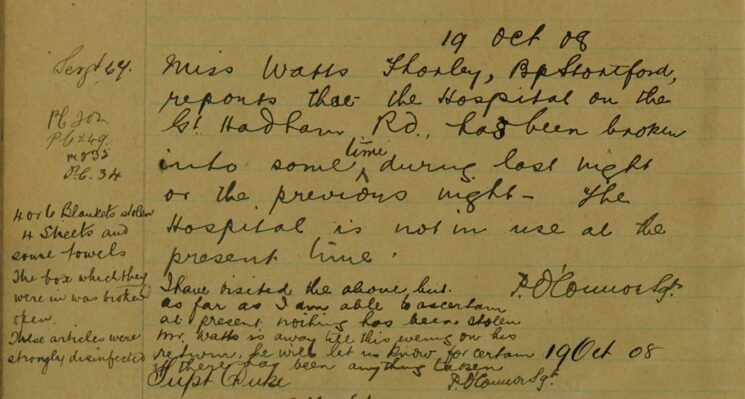 19 Oct 08
Sergt 64.
Miss Watts Thorley, Bp Stortford,
reports that the Hospital on the
Gt. Hadham Rd., has been broken
into some time during last night
or the previous night - The
Hospital is not in use at the
present time.
P. O'Connor Sgt.
PC 202
PC 249
P.C. 34
4 or 6 Blankets stolen
4 Sheets and
some towels
The box which they
were in was broken
open.
These articles were
strongly disinfected
I have visited the above, but
as far as I am able to ascertain
at present nothing has been stolen
Mr. Watts is away till this evening on his
return he will let us know for certain
if there has been anything taken
19 Oct 08
Supt Duke
P. O'Connor Sgt.